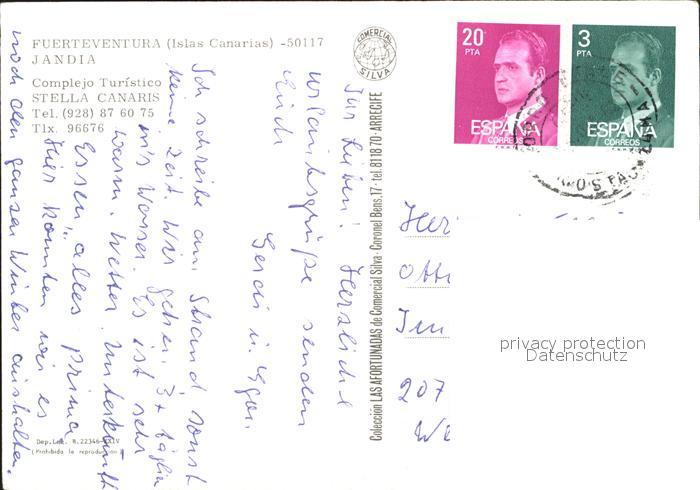 FUERTEVENTURA (Islas Canarias) -50117
JANDIA
Complejo Turístico
STELLA CANARIS
Tel. (928) 87 60 75
Tlx. 96676
COMERCIAL
SILVA
20 PTA
ESPAÑA
CORREOS
3 PTA
ESPAÑA
CORREOS
Ihr Lieben! Herzliche
Urlaubsgrüße senden
Euch
Gerdi u. Egon.
Ich schreibe am Strand, sonst
keine Zeit. Wir gehen 3 x täglich
ins Wasser. Es ist sehr
warm. Wetter, Unterkunft
Essen, alles prima.
Hier könnten wir es
noch den ganzen Winter aushalten.
Colección LAS AFORTUNADAS de Comercial Silva - Coronel Bens, 17 - tel. 811870 - ARRECIFE
Dep. Leg. B. 22346-XXIV
(Prohibida la reproducción)
207
privacy protection
Datenschutz